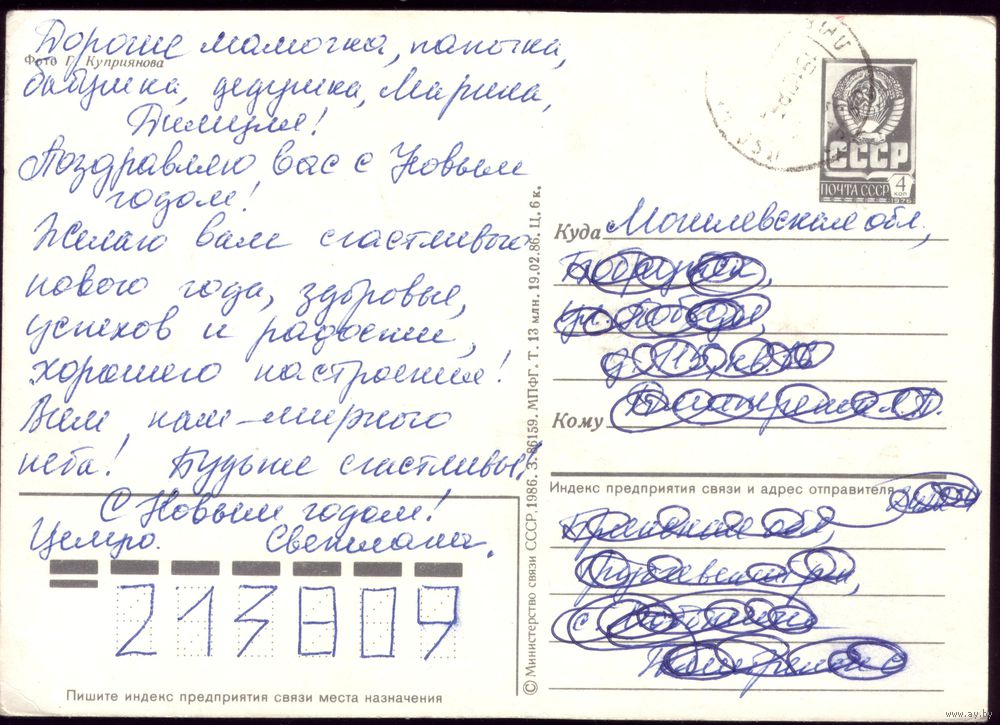 Дорогие мамочка, папочка,
Фото Г. Куприянова
бабушка, дедушка, Марина,
Поздравляю вас с Новым
годом!
Желаю вам счастливого
нового года, здоровья,
успехов и радости,
хорошего настроения!
Всем нам - мирного
неба! Будьте счастливы!
С Новым годом!
Целую. Светлана.
213809
Пишите индекс предприятия связи места назначения
© Министерство связи СССР, 1986. З. 86159. МПФГ. Т. 13 млн. 19.02.86. Ц. 6 к.
СССР
ПОЧТА СССР 4 КОП
1976
Куда Могилевская обл.,
Бобруйск,
ул. Победы,
д. 115, кв.
Кому
Индекс предприятия связи и адрес отправителя
обл,
с.
www.ay.by